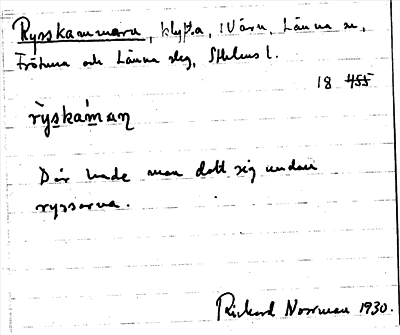 Rysskammarn, klypta, i Värn, Länna sn,
Frötuna och Länna slg, Sthlms l.
18 455
ryskáman
Där hade man dolt sig undan
ryssarna.
Rickard Norrman 1930.